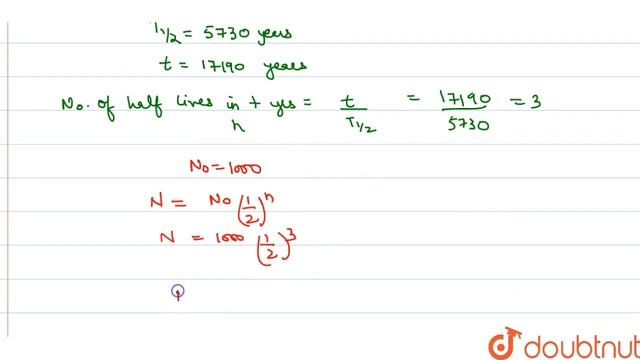 T1/2 = 5730 years
t = 17190 years
No. of half lives in t yrs = t/T1/2 = 17190/5730 = 3
n
No = 1000
N = No (1/2)^n
N = 1000 (1/2)^3
doubtnut